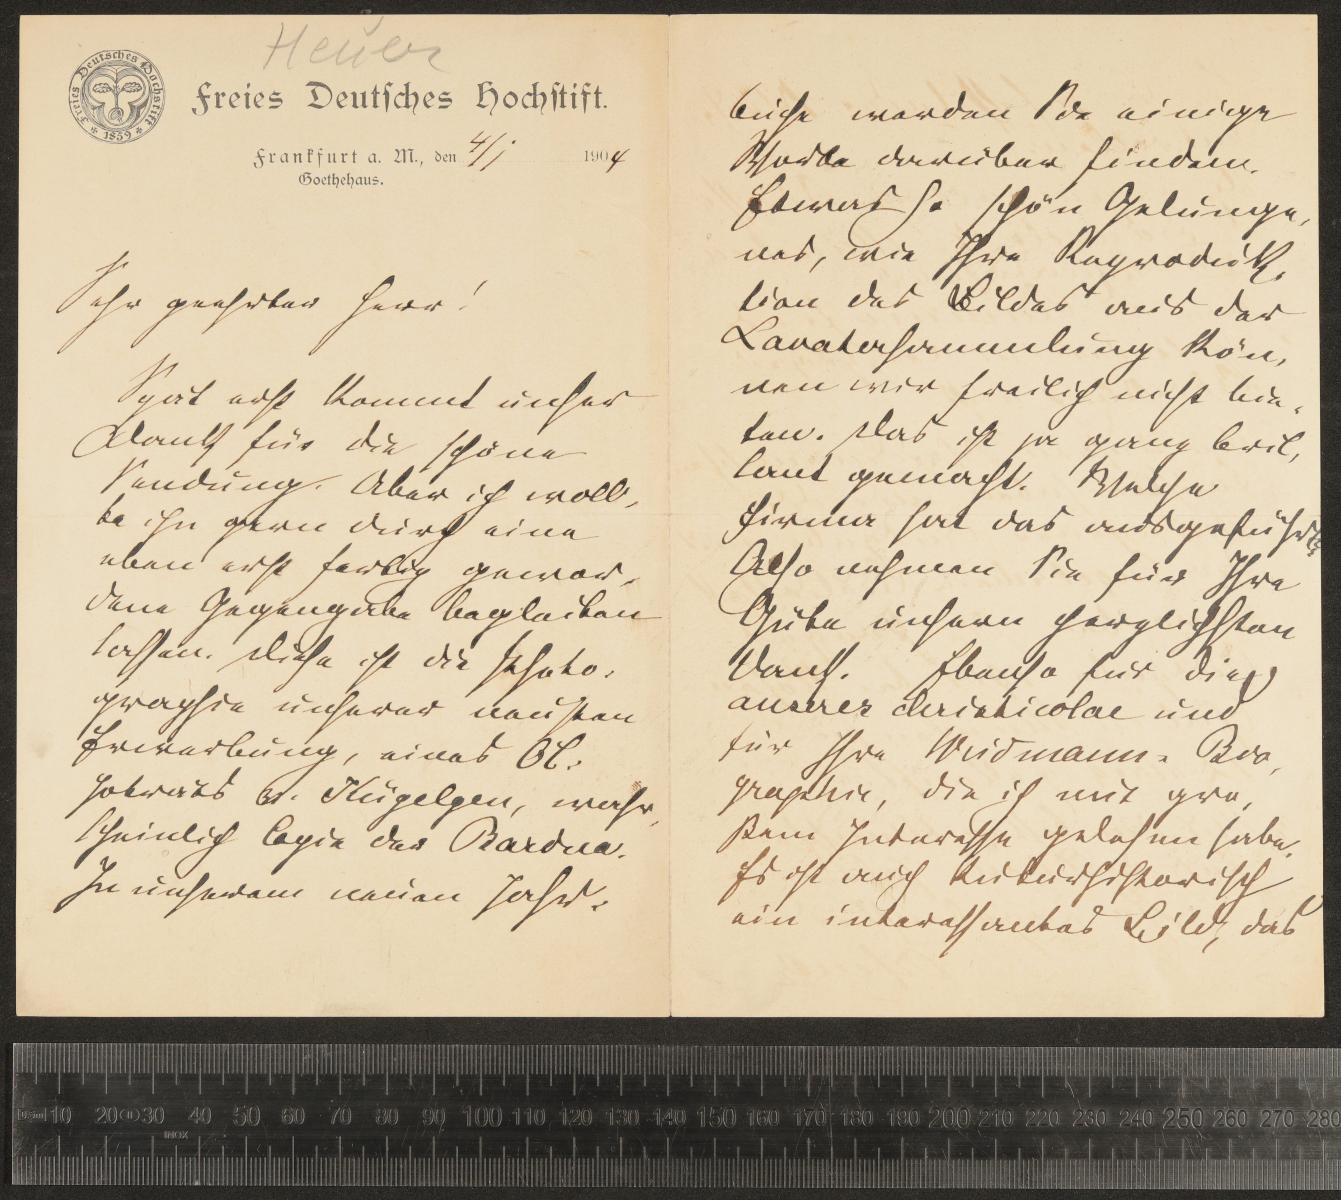 Heuer
Freies Deutsches Hochstift
1859
Freies Deutsches Hochstift.
Frankfurt a. M., den 4/1 1904
Goethehaus.
Sehr geehrter Herr!
Spät erst kommt unser
Dank für die schöne
Sendung. Aber ich woll-
te ihn gern durch eine
eben erst fertig gewor-
dene Gegengabe begleiten
lassen. Diese ist die Photo-
graphie unserer neusten
Erwerbung, eines Öl-
porträts v. Kügelgen, wahr-
scheinlich Copie der Bardua.
In unserem neuen Jahr-
buche werden Sie einige
Worte darüber finden.
Etwas so schön Gelunge-
nes, wie Ihre Reproduk-
tion des Bildes aus der
Lavatersammlung kön-
nen wir freilich nicht bie-
ten. Das ist ja ganz bril-
lant gemacht. Welche
Firma hat das ausgeführt?
Also nehmen Sie für Ihre
Güte unsern herzlichsten
Dank. Ebenso für die
anseres christicolae und
für Ihre Widmann-Bio-
graphie, die ich mit gro-
ßem Interesse gelesen habe.
Es ist auch kulturhistorisch
ein interessantes Bild, das
10 20 30 40 50 60 70 80 90 100 110 120 130 140 150 160 170 180 190 200 210 220 230 240 250 260 270 280
INOX